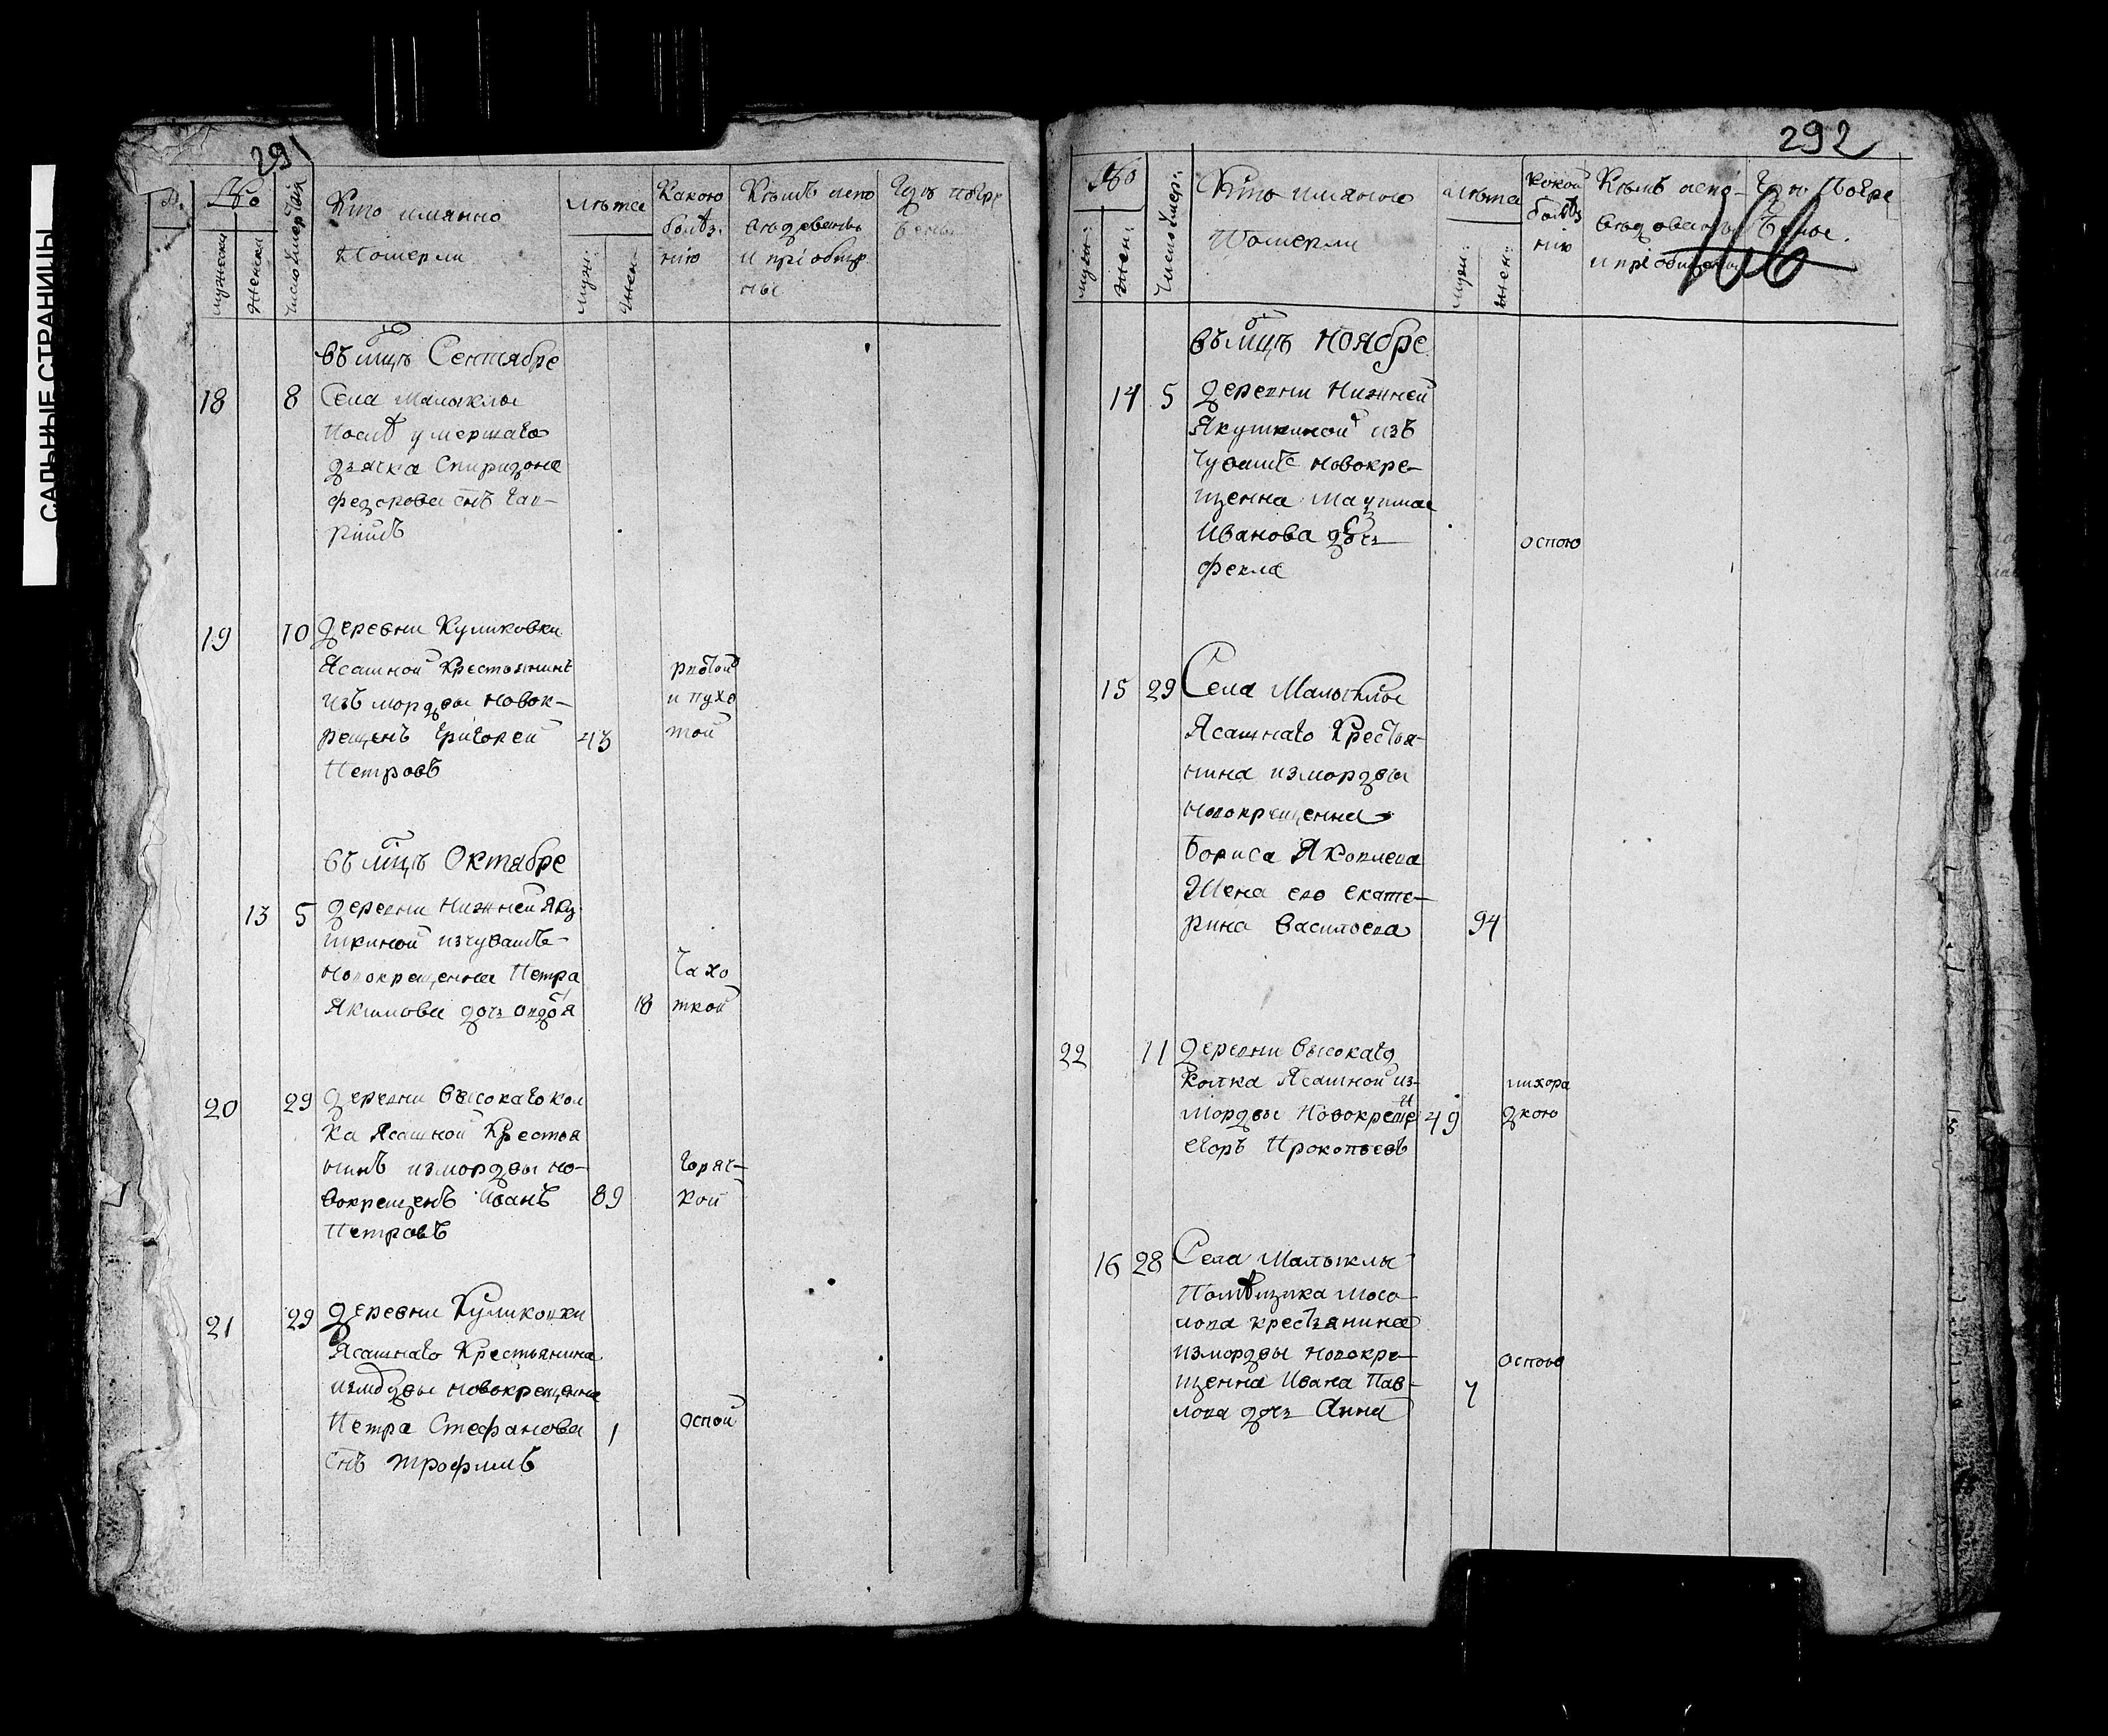 САЛЬНЫЕ СТРАНИЦЫ
291
№
мужеска
женска
число умертвія
Кто имянно
Померли
Лѣта
муж:
жен:
Какою
болѣз:
нію
Кѣмъ испо
вѣдованы
и пріобще
ны
Гдѣ погре
бены
въ мцѣ Сентябре
18 8 Села Малыклы
послѣ умершаго
дьячка Спиридона
федорова снъ Гав-
риилъ
19 10 деревни Куликовки
Ясашной Крестьянинъ
изъ мордвы новок-
рещенъ Григорей 43
Петровъ
рвотой
и пухо
той
въ мцѣ Октябре
13 5 деревни Нижней Яку-
шкиной изчувашъ-
новокрещенна Петра
Якимова дочь овдотя 18
Чахо
ткой
20 29 деревни высокаго кол
ка Ясашной Крестья
нинъ измордвы но-
вокрещенъ Иванъ 89
Петровъ
горяч-
кой
21 29 деревни Куликовки
Ясашнаго Крестьянина
измордвы новокрещенна
Петра Стефанова 1 оспой
снъ трофимъ
292
№
муж:
жен:
Число умер:
Кто имянно
Померли
Лѣта
муж:
жен:
Какой
болѣз
нію
Кѣмъ испо-
вѣдованы
и пріобщены
Гдѣ Погре
бены.
въ мцѣ Ноябре
14 5 деревни Нижней
Якушкиной изъ
Чувашъ новокре-
щенна
Иванова дочь оспою
фекла
15 29 Села Малыклы
Ясашнаго Крестья-
нина измордвы
новокрещенна
Бориса Яковлева
Жена ево екате-
рина васильева 94
22 11 деревни высокаго
колка Ясашной из-
мордвы Новокреще 49
егоръ Прокопьевъ
лихора
дкою
16 28 Села Малыклы
Помѣщика Мосо-
лова крестьянина
измордвы новокре-
щенна Ивана Пав-
лова дочь Анна
оспою